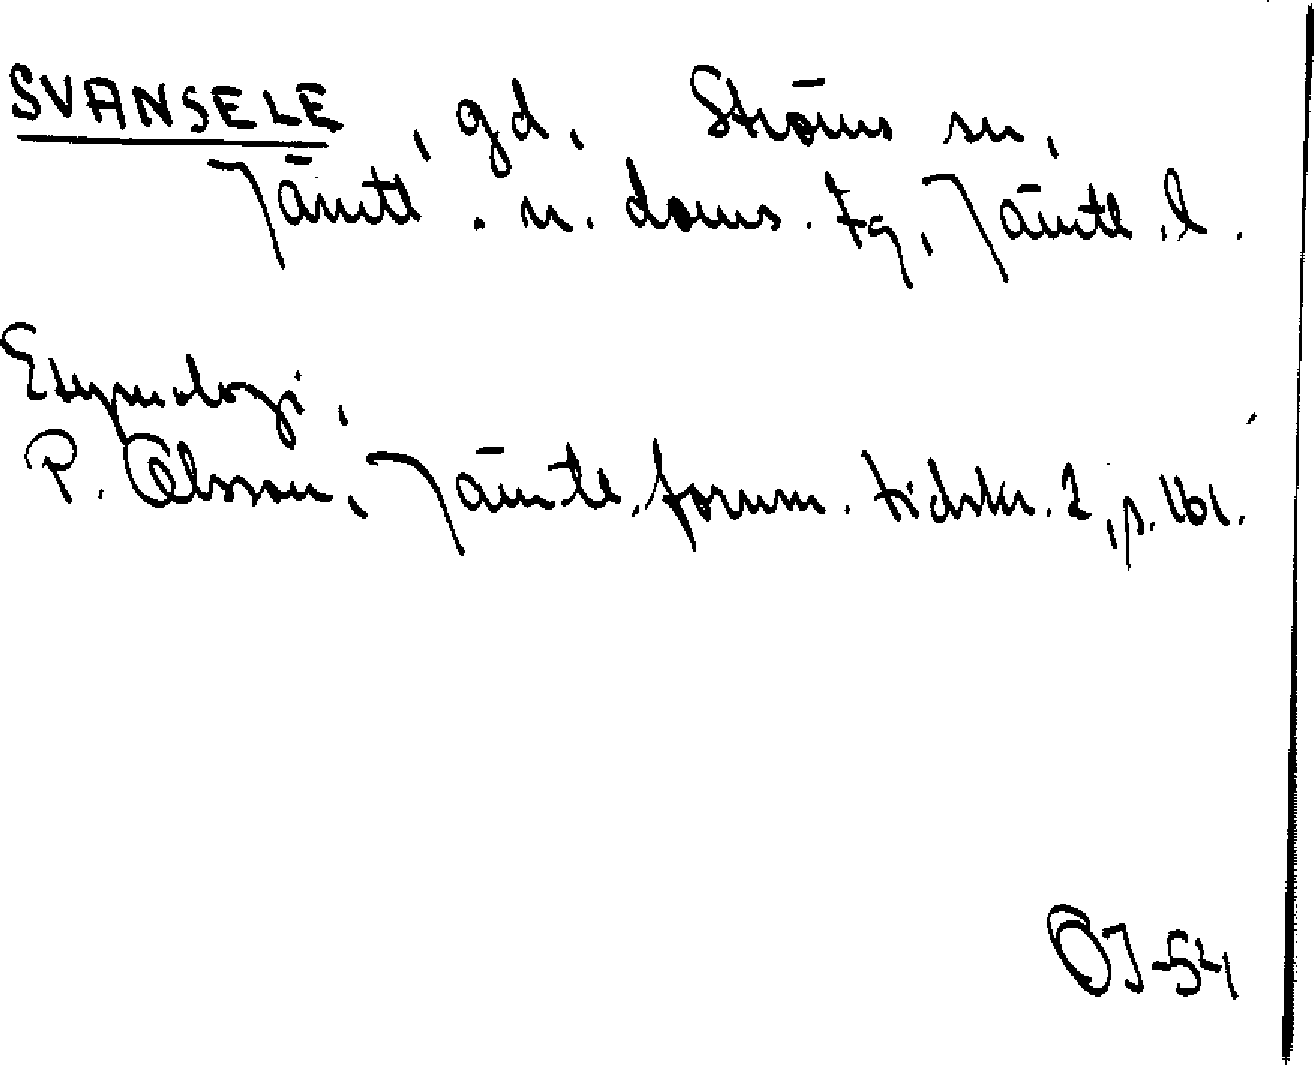 SVANSELE, gd, Ströms sn,
Jämtl. n. doms. tg, Jämtl. l.
Etymologi,
P. Olsson, Jämtl. fornm. tidskr. 2, p. 161.
OJ-54